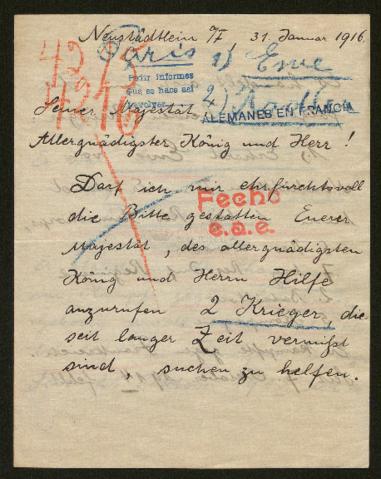 Neustädtlein o/F, 31. Januar 1916.
Paris 1) Esve
Pedir informes
que se hace así
devolver
2)
ALEMANES EN FRANCIA
Seiner Majestät
Allergnädigster König und Herr!
Darf ich mir ehrfurchtsvoll
die Bitte gestatten Euerer
Fecho
e.a.e.
Majestät, des allergnädigsten
König und Herrn Hilfe
anzurufen 2 Krieger, die
seit langer Zeit vermißt
sind, suchen zu helfen.